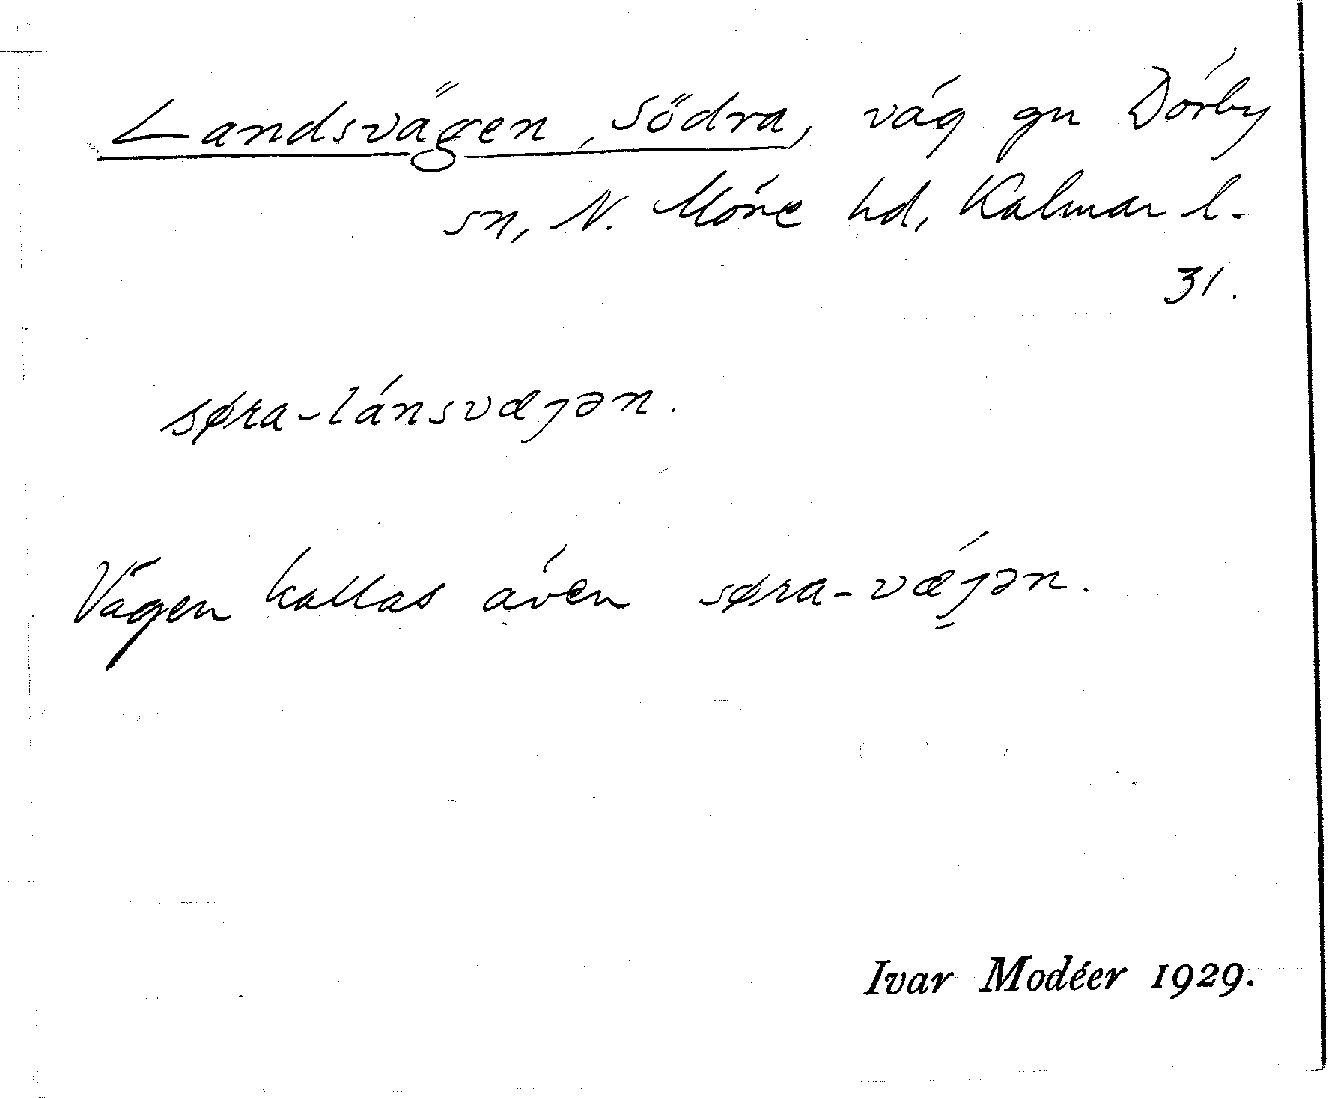 Landsvägen, Södra, väg gm Dörby
sn, N. Möre hd, Kalmar l.
31.
søra-lánsvæjən.
Vägen kallas även søra-væ̀jən.
Ivar Modéer 1929.